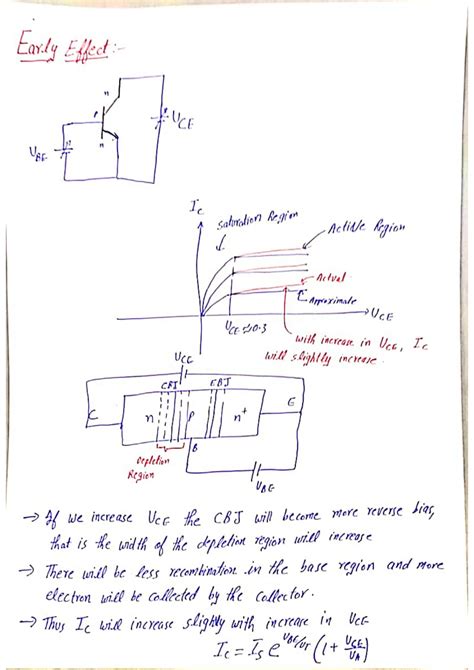 Early Effect :-
n
P
n
VBE
VCE
Ic
Saturation Region
Active Region
Actual
Approximate
VCE
VCE≃0.3
with increase in VCE, Ic
will slightly increase.
VCE
CBJ
EBJ
C
n
P
n+
E
B
Depletion
Region
VBE
→ If we increase VCE the CBJ will become more reverse bias,
that is the width of the depletion region will increase
→ There will be less recombination in the base region and more
electron will be collected by the collector.
→ Thus Ic will increase slightly with increase in VCE
Ic = Is e^VBE/VT (1 + VCE/VA)